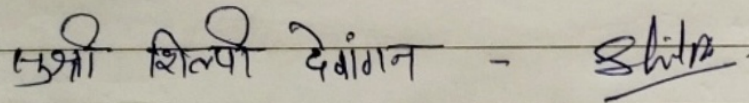 सुश्री शिल्पी देवांगन - Shilpi